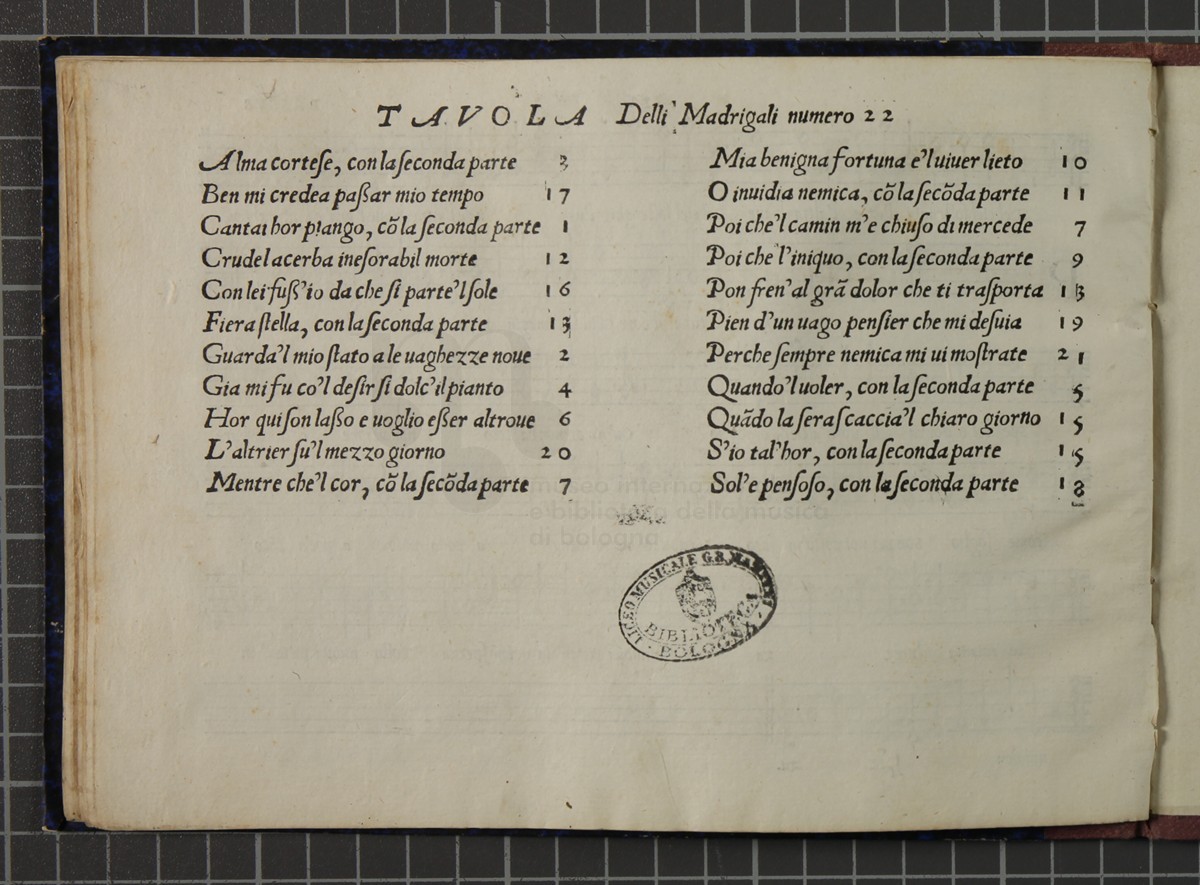 TAVOLA Delli Madrigali numero 22
Alma corteſe, con la ſeconda parte 3
Ben mi credea paßar mio tempo 17
Cantai hor piango, cō la ſeconda parte 1
Crudel acerba ineſorabil morte 12
Con lei fuſſ'io da che ſi parte'l ſole 16
Fiera ſtella, con la ſeconda parte 13
Guarda'l mio ſtato a le uaghezze noue 2
Gia mi fu co'l deſir ſi dolc'il pianto 4
Hor qui ſon laßo e uoglio eßer altroue 6
L'altrier ſu'l mezzo giorno 20
Mentre che'l cor, cō la ſecōda parte 7
Mia benigna fortuna e'l uiuer lieto 10
O inuidia nemica, cō la ſecōda parte 11
Poi che'l camin m'e chiuſo di mercede 7
Poi che l'iniquo, con la ſeconda parte 9
Pon fren'al grā dolor che ti traſporta 13
Pien d'un uago penſier che mi deſuia 19
Perche ſempre nemica mi ui moſtrate 21
Quando'l uoler, con la ſeconda parte 5
Quādo la ſera ſcaccia'l chiaro giorno 15
S'io tal'hor, con la ſeconda parte 15
Sol'e penſoſo, con la ſeconda parte 18
museo internaz
e biblioteca della musica
di bologna
LICEO MUSICALE G.B. MARTINI
BIBLIOTECA
BOLOGNA